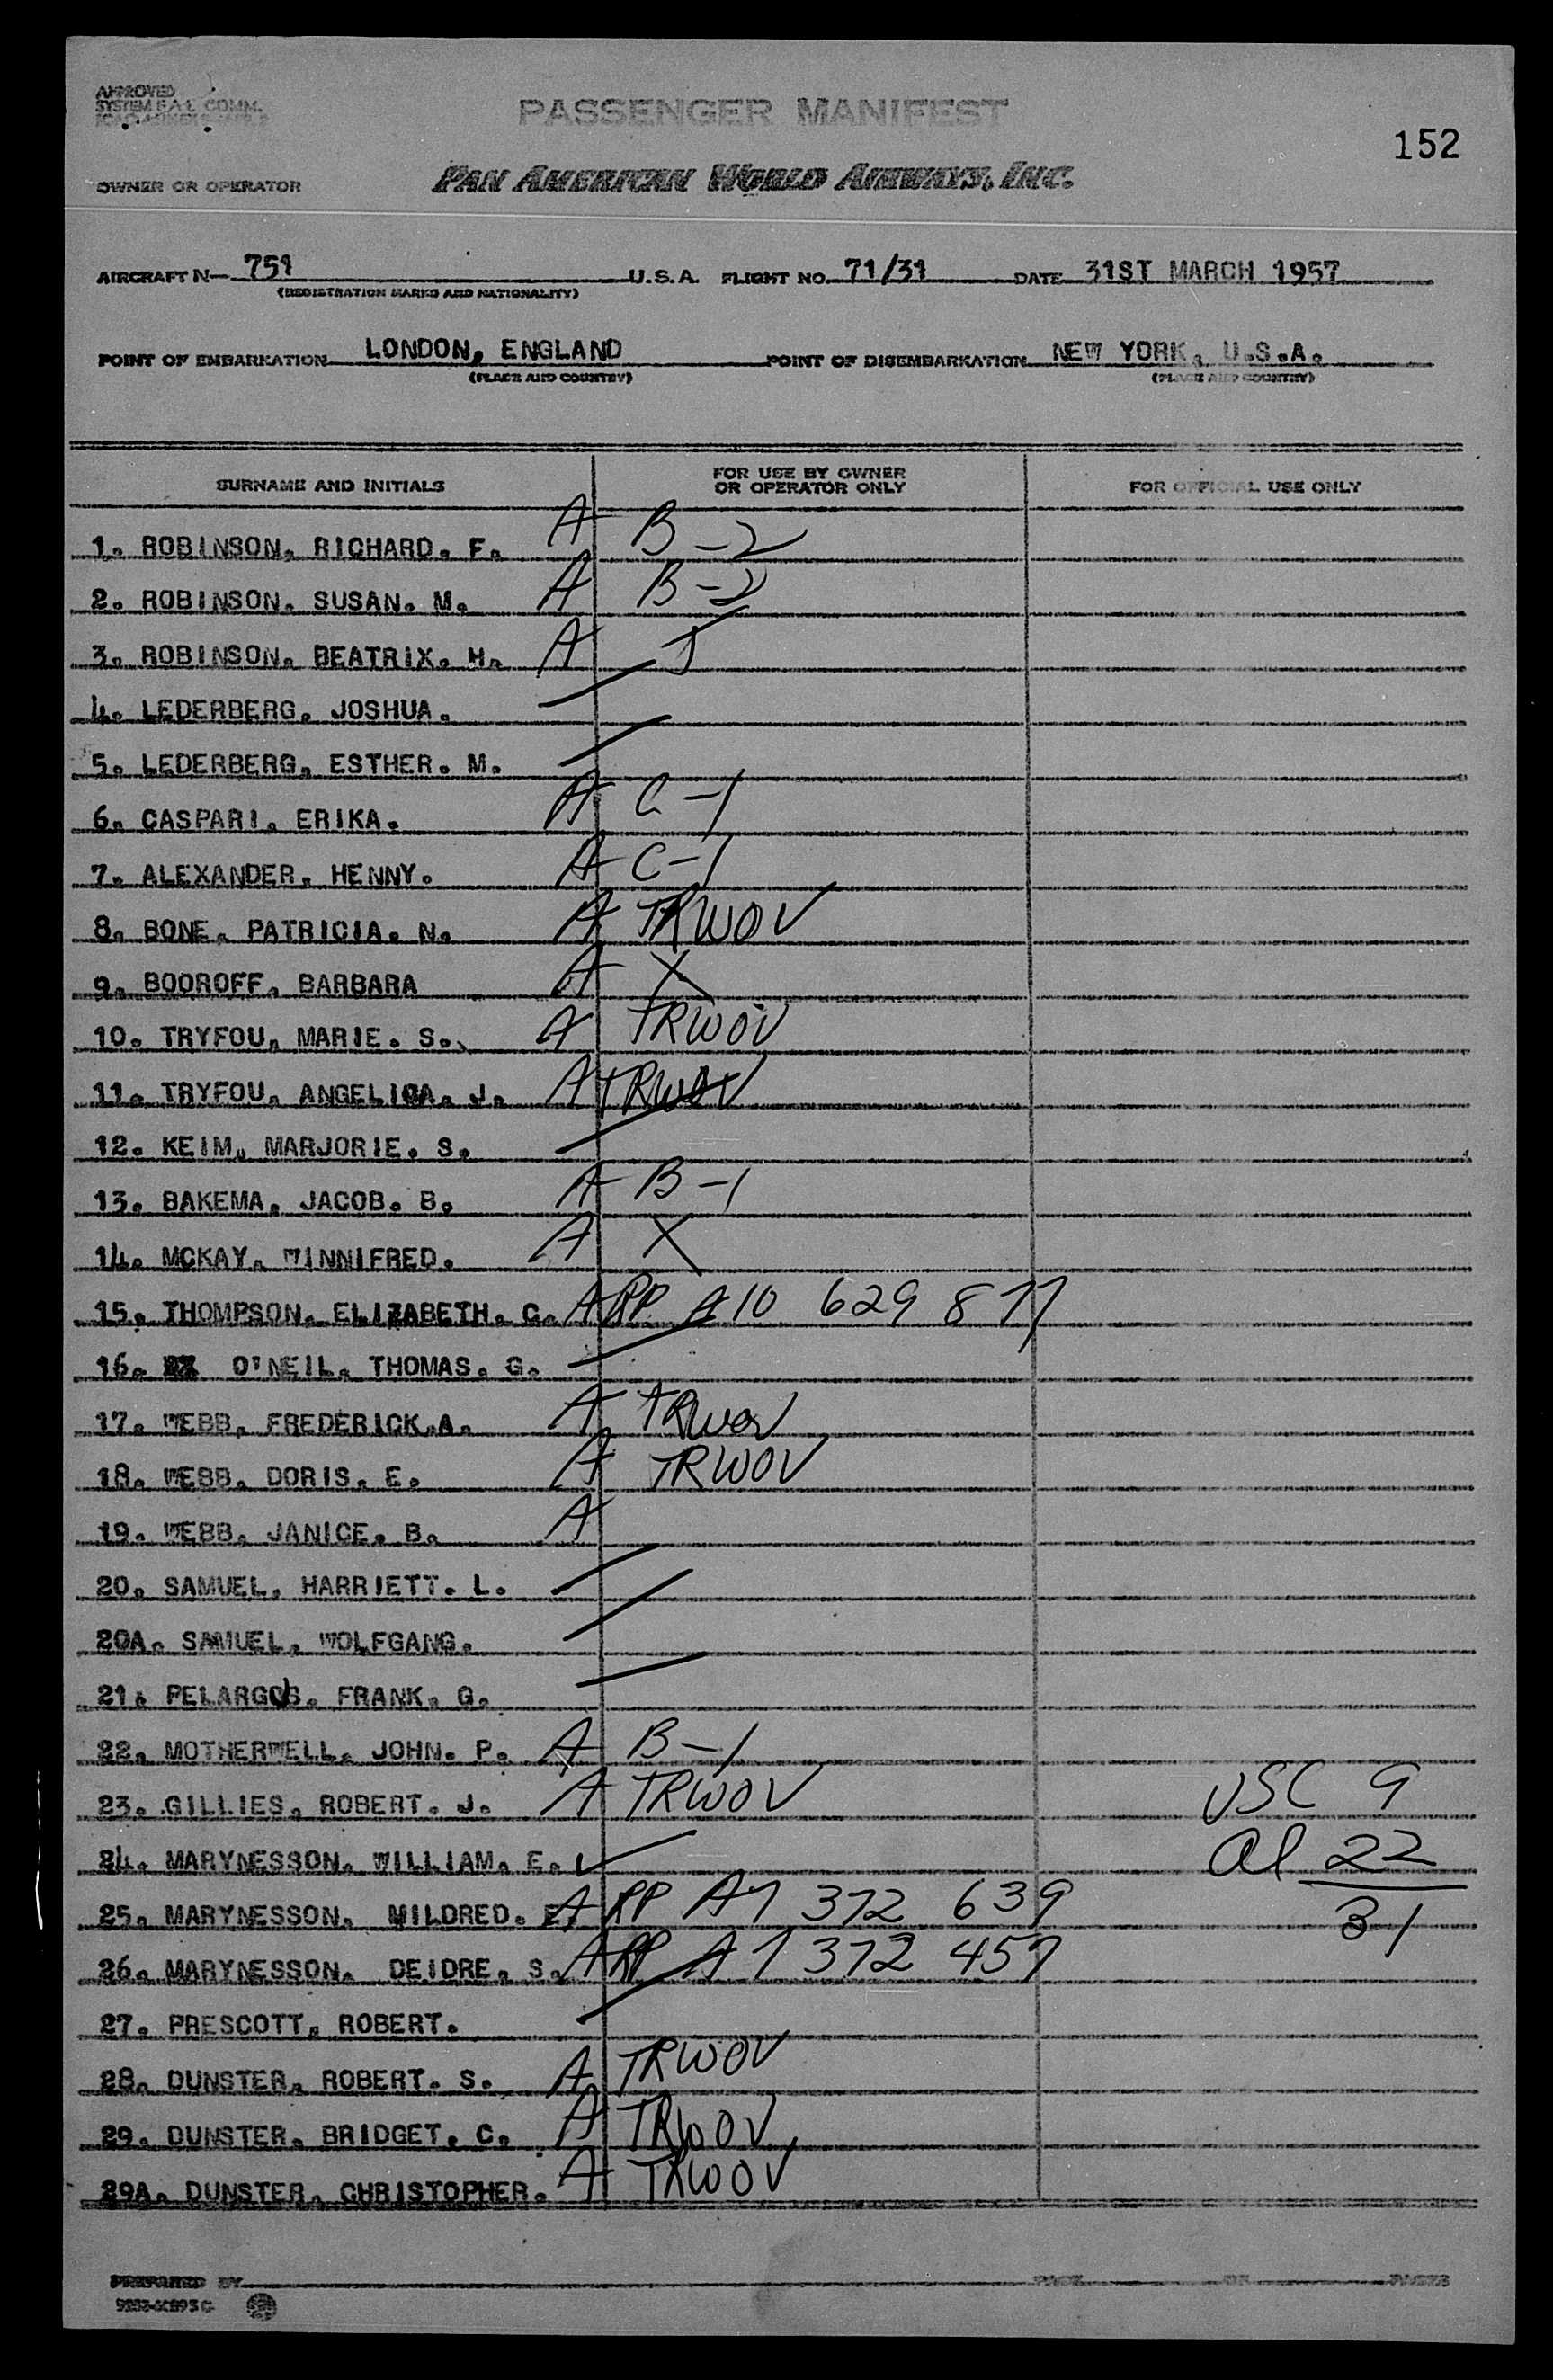 APPROVED
SYSTEM F.A.L. COMM.
PASSENGER MANIFEST
152
OWNER OR OPERATOR PAN AMERICAN WORLD AIRWAYS, INC.
AIRCRAFT N— 751 U.S.A. FLIGHT NO. 71/31 DATE 31ST MARCH 1957
(REGISTRATION MARKS AND NATIONALITY)
POINT OF EMBARKATION LONDON, ENGLAND POINT OF DISEMBARKATION NEW YORK, U.S.A.
(PLACE AND COUNTRY) (PLACE AND COUNTRY)
SURNAME AND INITIALS FOR USE BY OWNER OR OPERATOR ONLY FOR OFFICIAL USE ONLY
1. ROBINSON, RICHARD. F. A B-2
2. ROBINSON, SUSAN. M. A B-2
3. ROBINSON, BEATRIX. H. A
4. LEDERBERG, JOSHUA.
5. LEDERBERG, ESTHER. M.
6. CASPARI, ERIKA. A C-1
7. ALEXANDER, HENNY. A C-1
8. BONE, PATRICIA. N. A TRWOV
9. BOOROFF, BARBARA A X
10. TRYFOU, MARIE. S. A TRWOV
11. TRYFOU, ANGELICA. J. A TRWOV
12. KEIM, MARJORIE. S.
13. BAKEMA, JACOB. B. A B-1
14. MCKAY, WINNIFRED. A X
15. THOMPSON, ELIZABETH. C. A RP A10 629 877
16. O'NEIL, THOMAS. G.
17. WEBB, FREDERICK.A. A TRWOV
18. WEBB, DORIS. E. A TRWOV
19. WEBB, JANICE. B. A
20. SAMUEL, HARRIETT. L.
20A. SAMUEL, WOLFGANG.
21. PELARGOS, FRANK. G.
22. MOTHERWELL, JOHN. P. A B-1
23. GILLIES, ROBERT. J. A TRWOV USC 9
24. MARYNESSON, WILLIAM. E. Al 22
25. MARYNESSON, MILDRED. E. A RP A7 372 639 31
26. MARYNESSON, DEIDRE. S. A RP A7 372 457
27. PRESCOTT, ROBERT.
28. DUNSTER, ROBERT. S. A TRWOV
29. DUNSTER, BRIDGET. C. A TRWOV
29A. DUNSTER, CHRISTOPHER. A TRWOV
PREPARED BY PAGE OF PAGES